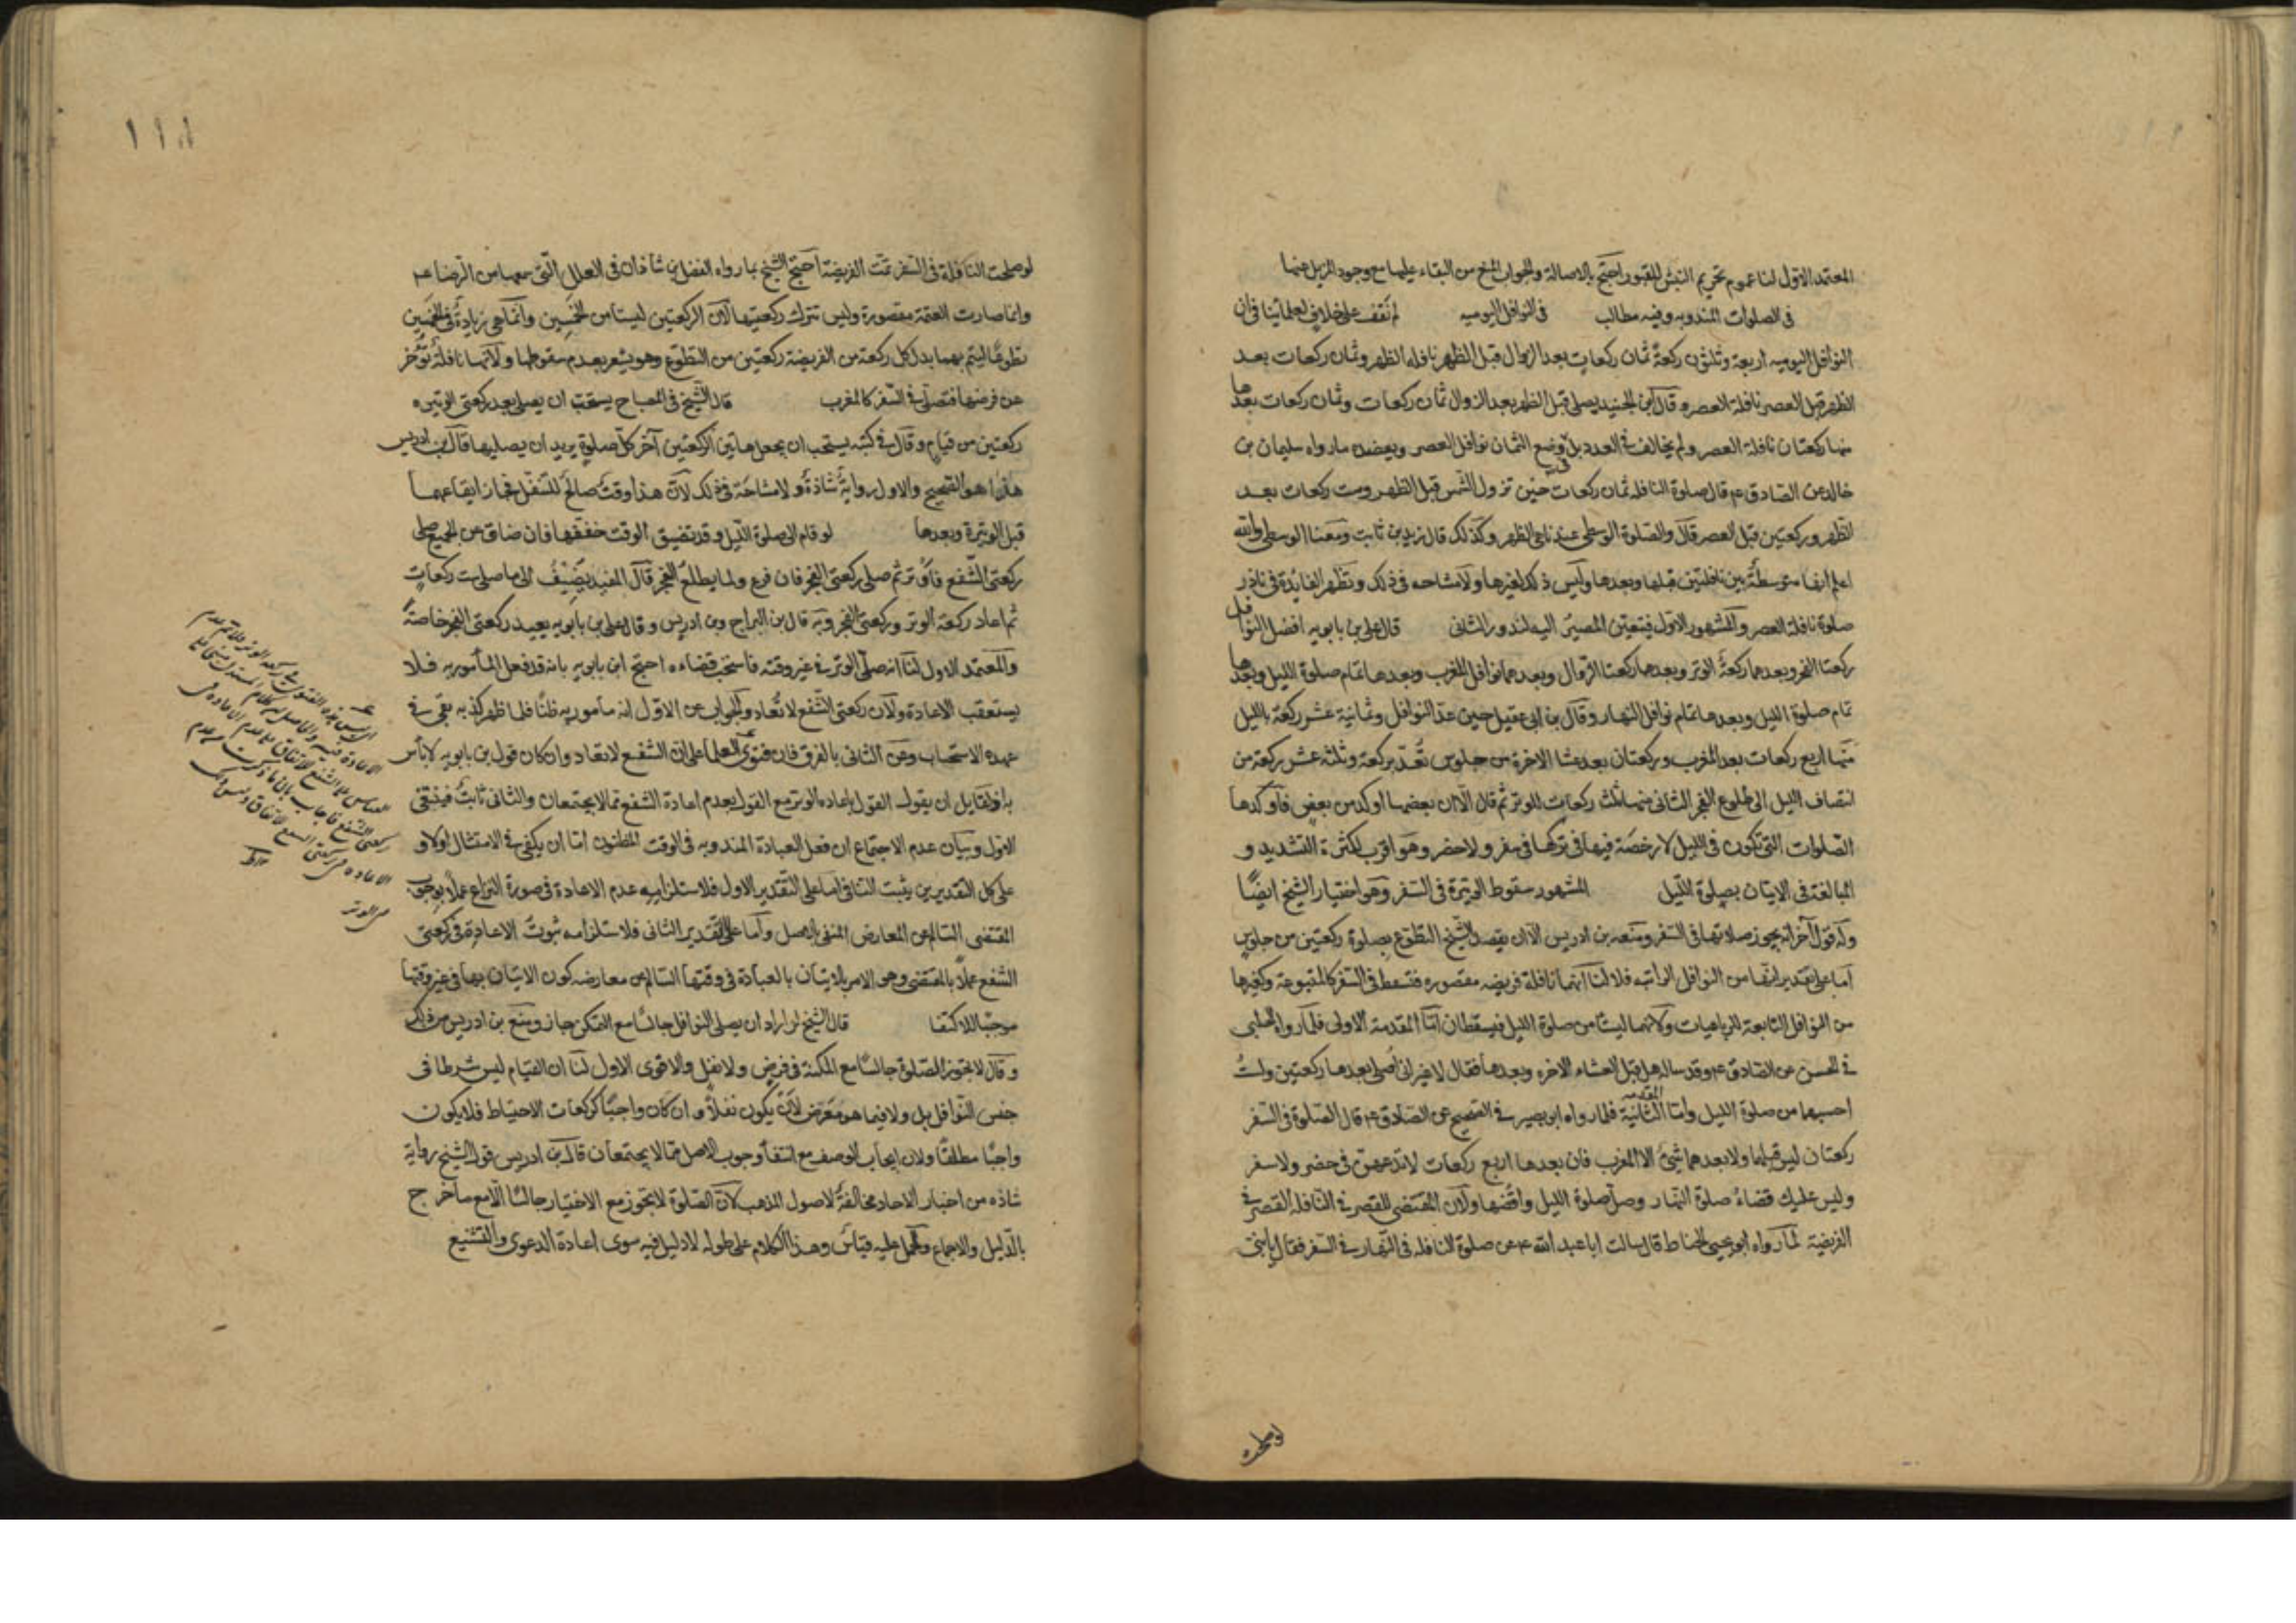 المعتمد الاول لنا عموم تحريم النبش للقبور احتج بالاصالة والجواب المنع من البقاء عليها مع وجود المزيل عنها
فى الصلوات المندوبه وفيه مطالب فى النوافل اليوميه لم نقف على خلاف لعلمائنا فى ان
النوافل اليوميه اربعة وثلثون ركعةً ثمان ركعات بعد الزوال قبل الظهر نافله الظهر وثمان ركعات بعد
الظهر قبل العصر نافلة العصر وقال ابن الجنيد يصلى قبل الظهر بعد الزوال ثمان ركعات وثمان ركعات بعدها
منها ركعتان نافلة العصر ولم يخالف فى العدد بل فى وضع الثمان نوافل العصر ويعضده مارواه سليمان بن
خالد عن الصادق ع م قال صلوة النافله ثمان ركعات حين تزول الشمس قبل الظهر وست ركعات بعد
الظهر وركعتين قبل العصر قال والصلوة الوسطى عندنا هى الظهر وكذلك قال زيد بن ثابت ومعنا الوسطى والله
اعلم انها متوسطةٌ بين نافلتين قبلها وبعدها وليس ذلك لغيرها ولا مشاحه فى ذلك وتظهر الفايدة فى ناذر
صلوة نافلة العصر والمشهور الاول فيتعين المصير اليه لندور الثانى قال على بن بابويه افضل النوافل
ركعتا الفجر وبعدهما ركعةُ الوتر وبعدها ركعتا الزوال وبعدهما نوافل المغرب وبعدها تمام صلوة الليل وبعدها
تمام صلوة الليل وبعدها تمام نوافل النهار وقال بن ابى عقيل حين عدّ النوافل وثمانية عشر ركعة بالليل
منها اربع ركعات بعد المغرب وركعتان بعد عشا الاخرة من جلوس تُعَدّ بركعة وثلثه عشر ركعة من
انتصاف الليل الى طلوع الفجر الثانى منها ثلث ركعات للوتر ثم قال الا ان بعضها اوكد من بعض فاوكدها
الصلوات التى تكون فى الليل لا رخصة فيها فى تركها فى سفر ولا حضر وهو اقرب لكثرة التشديد و
المبالغة فى الاتيان بصلوة الليل المشهور سقوط الوتيرة فى السفر وهو اختيار الشيخ ايضًا
وله قول آخر انه يجوز صلاتها فى السفر ومنعه بن ادريس الا ان يقصد الشيخ التطوع بصلوة ركعتين من جلوس
اما على تقدير انها من النوافل الراتبه فلا لنا انها نافلة فريضه مقصوره فتسقط فى السفر كالمتبوعة وكغيرها
من النوافل التابعة للرباعيات ولانهما ليستا من صلوة الليل فيسقطان امّا المقدمة الاولى فلما رواه الحلبى
فى الحسن عن الصادق ع م وقد ساله هل قبل العشاء الاخره وبعدها فقال لا غير انى اُصلى بعدها ركعتين ولستُ
احسبهما من صلوة الليل وامّا المقدمه الثانية فلما رواه ابو بصير فى الصحيح عن الصادق ع م قال الصلوة فى السفر
ركعتان ليس قبلهما ولا بعدهما شئ الا المغرب فان بعدها اربع ركعات لا تدعهن فى حضر ولا سفر
وليس عليك قضاءُ صلوة النهار وصلّ صلوة الليل واقضها ولان المقتضى للقصر فى النافله القصر فى
الفريضة لما رواه ابو يحيى الحناط قال سالت ابا عبد الله ع م عن صلوة النافله فى النهار فى السفر فقال يا بنى
لو صلحت
١١١
لو صلحت النافلة فى السفر تمّت الفريضة احتج الشيخ بما رواه الفضل بن شاذان فى العلل التى سمعها من الرضا ع م
وانما صارت العتمة مقصورة وليس تترك ركعتيها لان الركعتين ليستا من الخمسين وانما هى زيادةٌ فى الخمسين
تطوعًا ليتم بهما بدل كل ركعة من الفريضة ركعتين من التطوّع وهو يشعر بعدم سقوطها ولانها نافلة تُؤخر
عن فرضها فتصلى فى السفر كالمغرب قال الشيخ فى المصباح يستحب ان يصلى بعد ركعتى الوتيره
ركعتين من قيام وقال فى كتبه يستحب ان يجعل هاتين الركعتين آخر كل صلوة يريد ان يصليها قال بن ادريس
هذا هو الصحيح والاول روايةٌ شاذةٌ ولا مشاحة فى ذلك لان هذا وقت صالح للتنفل فجاز ايقاعهما
قبل الوتيرة وبعدها لو قام الى صلوة الليل وقد تضيق الوقت خففها فان ضاق عن الجميع صلى
ركعتى الشفع فاوتر ثم صلى ركعتى الفجر فان فرغ ولما يطلع الفجر قال المفيد يضيفُ الى ما صلى ست ركعات
ثم اعاد ركعة الوتر وركعتى الفجر وبه قال بن البراج وبن ادريس وقال على بن بابويه يعيد ركعتى الفجر خاصةً
والمعتمد الاول لنا انه صلّى الوتر فى غير وقته فاستحب قضاءه احتج ابن بابويه بانه قد فعل المأمور به فلا
يستعقب الاعادة ولان ركعتى الشفع لا تُعاد والجواب عن الاول انه مأمور به ظنًا فلما ظهر كذبه بقى فى
عهده الاستحباب وعن الثانى بالفرق فان فتوى العلما على ان الشفع لا تعاد وان كان قول بن بابويه لا باس
به اذ لقايل ان يقول القول باعاده الوتر مع القول بعدم اعادة الشفع مما لا يجتمعان والثانى ثابتٌ فينتفى
الاول وبيان عدم الاجتماع ان فعل العبادة المندوبه فى الوقت المظنون امّا ان يكفى فى الامتثال اولا و
على كل التقديرين يثبت التنافى اما على التقدير الاول فلاستلزامه عدم الاعادة فى صورة النزاع عملاً بوجوب
المقتضى السالم عن المعارض المنفى بالاصل وأما على التقدير الثانى فلاستلزامه ثبوت الاعادة فى ركعتى
الشفع عملاً بالمقتضى وهو الامر بالاتيان بالعبادة فى وقتها السالم عن معارضه كون الاتيان بها فى غير وقتها
موجبًا للاكتفا قال الشيخ لو اراد ان يصلى النوافل جالسًا مع التمكن جاز ومنع بن ادريس من ذلك
وقال لا تجوز الصلوة جالسًا مع المكنة فى فرض ولا نفل والاقوى الاول لنا ان القيام ليس شرطا فى
جنس النوافل بل ولا فيما هو معرّض لان يكون نفلاً وان كان واجبًا كركعات الاحتياط فلا يكون
واجبًا مطلقًا ولان ايجاب الوصف مع انتفأ وجوب الاصل مما لا يجتمعان قال بن ادريس قول الشيخ رواية
شاذه من اخبار الاحاد مخالفةٌ لاصول المذهب لان الصلوة لا تجوز مع الاختيار جالسًا الّا مع ما خرج
بالدليل والاجماع وحمل عليه قياس وهذا الكلام على طوله لا دليل فيه سوى اعادة الدعوى والتشنيع